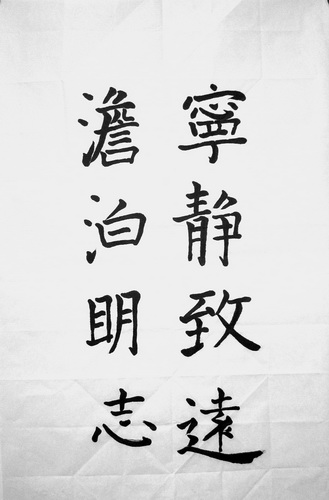 寧静致遠
澹泊明志